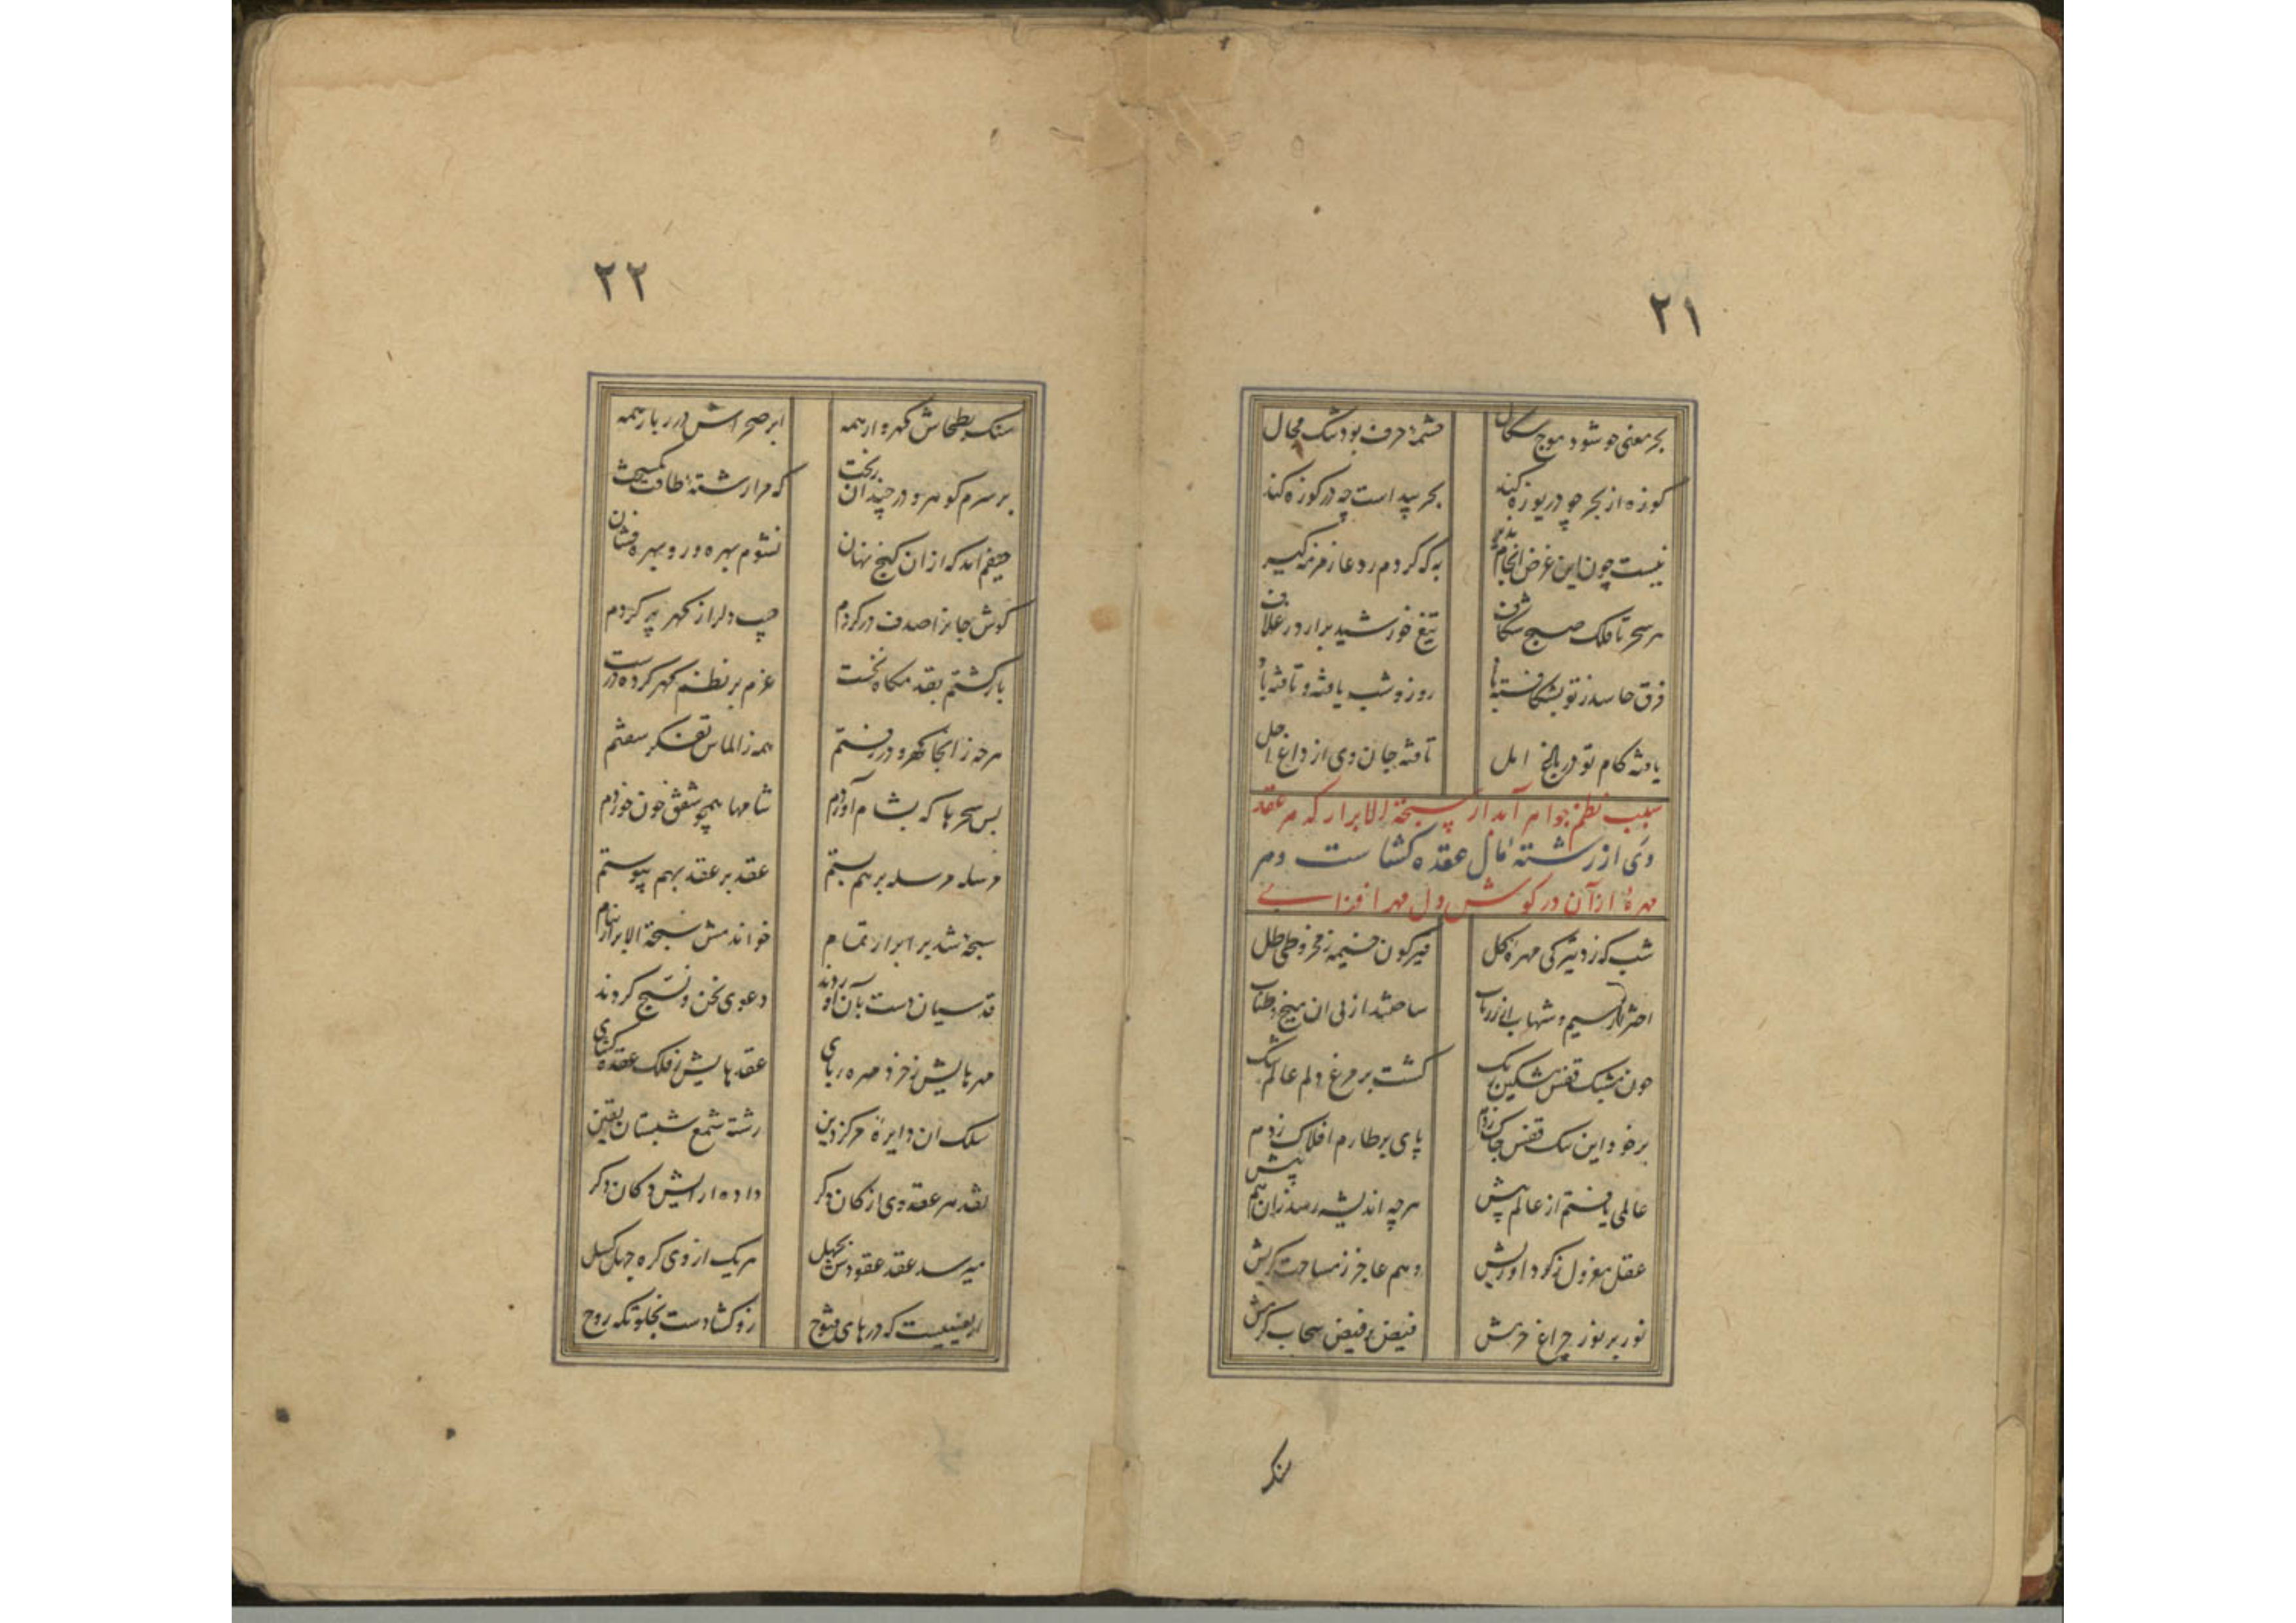 ٢١
بحر معنی چو شود موج سکال چشمهٔ حرف بود تنک مجال
کوزه از بحر چو دریوزه کند بحر پیداست چه در کوزه کند
نیست چون این غرض انجام پذیر به که کردم ره دعا زمزمه کیر
هر سحر تا فلک صبح شکاف تیغ خورشید برارد ز غلاف
فرق حاسد ز تو بشکافته باد روز و شب یافته و تافته باد
یافته کام تو در باغ امل تافته جان وی از داغ اجل
سبب نظم جواهر آبدار سبحة الابرار که هر عقد
وی از رشته آمال عقده کشا ست و هر
مهرهٔ از آن در کوش دل مهر افزای
شب که زد تیرکی مهرهٔ کل قیرکون خیمه ز مخروطی ظل
اختر از سیم و شهاب از زر ناب ساختند از پی آن میخ و طناب
چون مشبک قفس مشکین رنک کشت بر مرغ دلم عالم تنک
بر خود این تنک قفس چاک زدم پای بر طارم افلاک زدم
عالمی یافتم از عالم پیش هرچه اندیشه رسد زان هم پیش
عقل معزول ز کرد آوریش وهم عاجز ز مساحت کریش
نور بر نور چراغ حرمش فیض بر فیض سحاب کرمش
سنک
٢٢
سنک بطحاش کهروار همه ابر صحراش درربار همه
بر سرم کوهر و در چندان ریخت که مرا رشتهٔ طاقت بکسیخت
حیفم آمد که از آن کنج نهان نشوم بهره ور و بهره فشان
کوش جانرا صدف در کردم جیب دلرا ز کهر پر کردم
باز کشتم بقدمکاه نخست عزم بر نظم کهر کرده درست
هرچه زانجا کهر و در رفتم همه ز الماس تفکر سفتم
بس سحرها که بشام آوردم شامها همچو شفق خون خوردم
مرسله مرسله بر هم بستم عقد بر عقد بهم پیوستم
سبحه شد بهر ابرار تمام خواندمش سبحة الابرار بنام
قدسیان دست بآن آوردند دعوی نحن نسبح کردند
مهرهایش ز خرد مهره ربای عقدهایش ز فلک عقده کشای
سلک آن دایرهٔ مرکز دین رشتهٔ شمع شبستان یقین
نقد هر عقد وی از کان دکر داده آرایش دکان دکر
میرسد عقد عقودش بچهل هر یک از وی کره جهل کسل
اربعینیست که درهای فتوح زو کشادست بخلوتکه روح